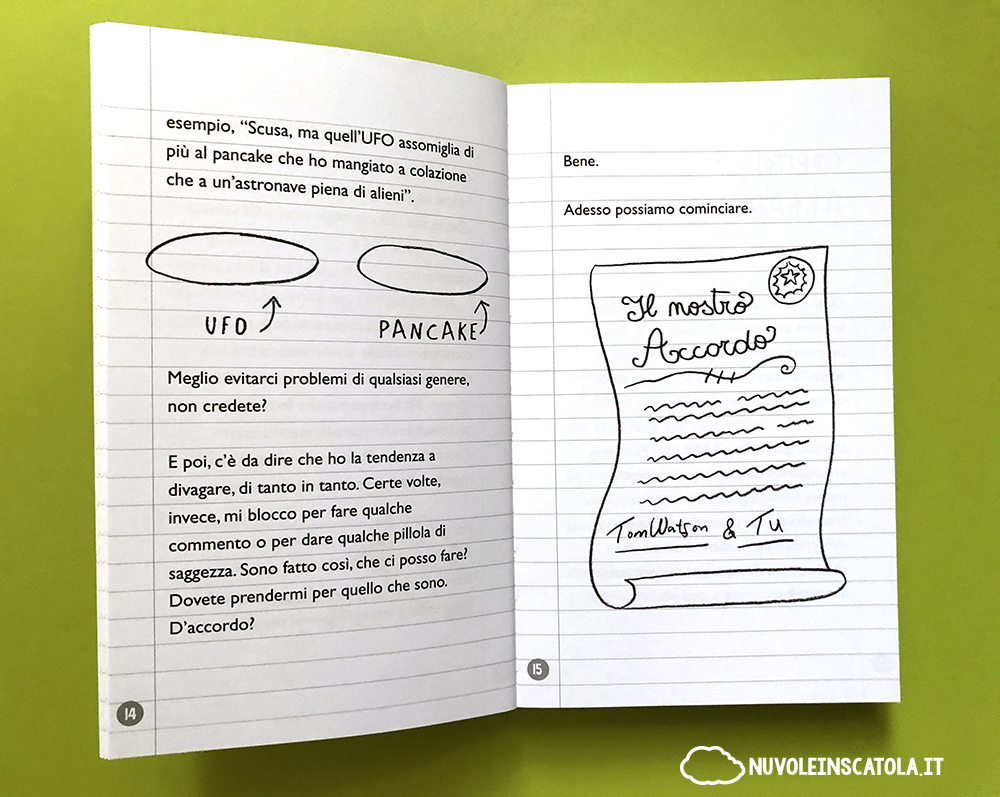 esempio, “Scusa, ma quell’UFO assomiglia di
più al pancake che ho mangiato a colazione
che a un’astronave piena di alieni”.
UFO
PANCAKE
Meglio evitarci problemi di qualsiasi genere,
non credete?
E poi, c’è da dire che ho la tendenza a
divagare, di tanto in tanto. Certe volte,
invece, mi blocco per fare qualche
commento o per dare qualche pillola di
saggezza. Sono fatto così, che ci posso fare?
Dovete prendermi per quello che sono.
D’accordo?
14
Bene.
Adesso possiamo cominciare.
Il nostro
Accordo
Tom Watson & Tu
15
NUVOLEINSCATOLA.IT